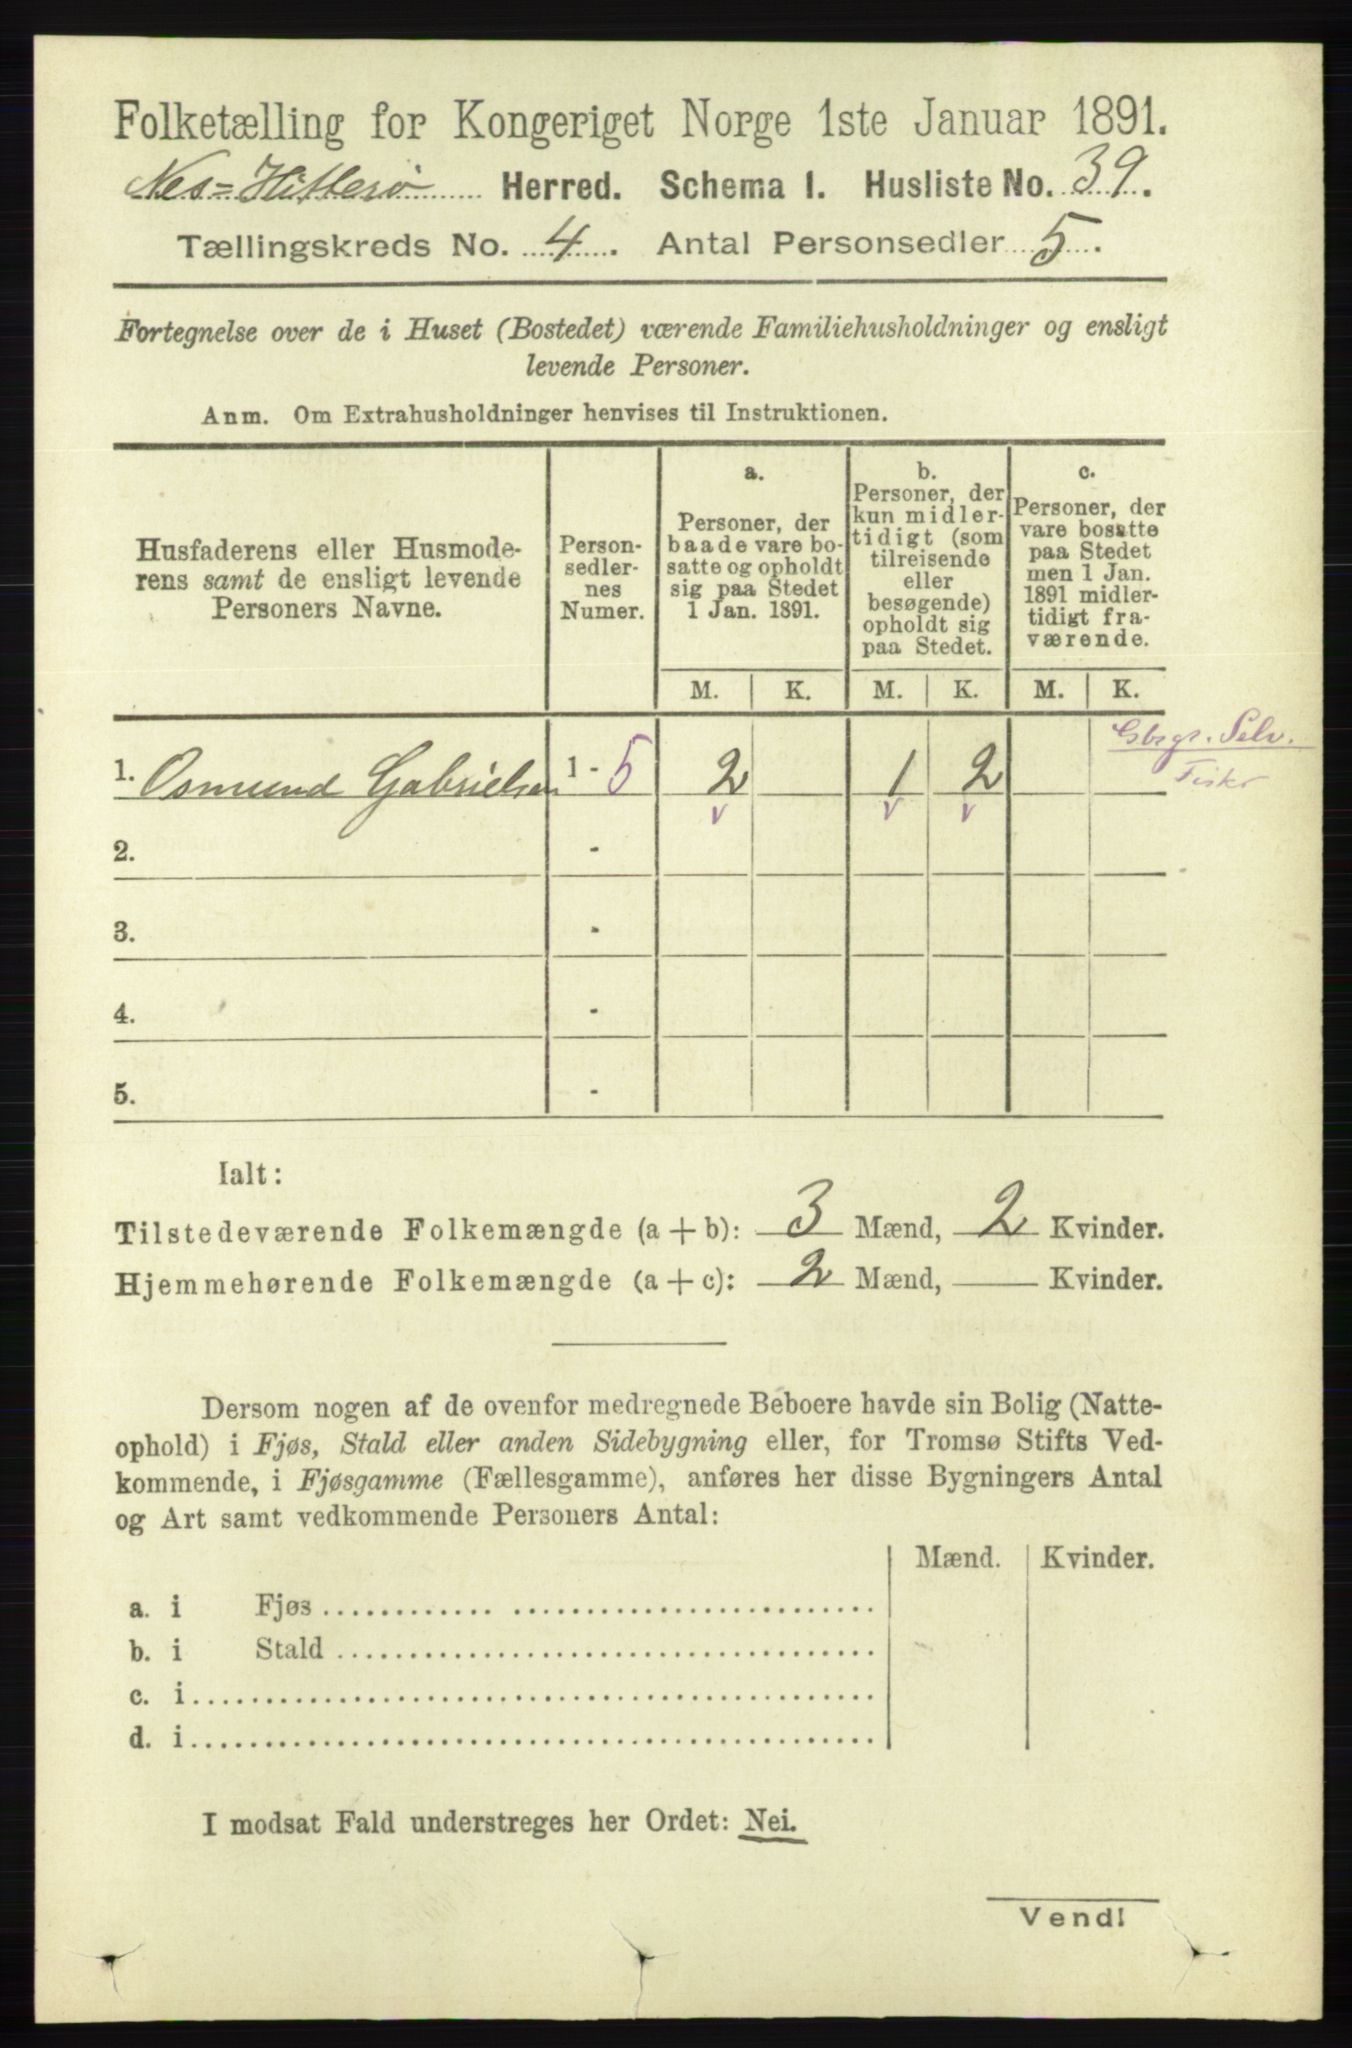 Folketælling for Kongeriget Norge 1ste Januar 1891.
Nes=Hitterø Herred. Schema I. Husliste No. 39.
Tællingskreds No. 4. Antal Personsedler 5.
Fortegnelse over de i Huset (Bostedet) værende Familiehusholdninger og ensligt
levende Personer.
Anm. Om Extrahusholdninger henvises til Instruktionen.
Husfaderens eller Husmode-
rens samt de ensligt levende
Personers Navne.
Person-
sedler-
nes
Numer.
a.
Personer, der
baade vare bo-
satte og opholdt
sig paa Stedet
1 Jan. 1891.
b.
Personer, der
kun midler-
tidigt (som
tilreisende
eller
besøgende)
opholdt sig
paa Stedet.
c.
Personer, der
vare bosatte
paa Stedet
men 1 Jan.
1891 midler-
tidigt fra-
værende.
M. K. M. K. M. K.
1. Osmund Gabrielsen 1 - 5 2 1 2
Gbrgr. Selv.
Fisker
v v v
2. -
3. -
4. -
5. -
Ialt:
Tilstedeværende Folkemængde (a + b): 3 Mænd, 2 Kvinder.
Hjemmehørende Folkemængde (a + c): 2 Mænd, Kvinder.
Dersom nogen af de ovenfor medregnede Beboere havde sin Bolig (Natte-
ophold) i Fjøs, Stald eller anden Sidebygning eller, for Tromsø Stifts Ved-
kommende, i Fjøsgamme (Fællesgamme), anføres her disse Bygningers Antal
og Art samt vedkommende Personers Antal:
Mænd. Kvinder.
a. i Fjøs
b. i Stald
c. i
d. i
I modsat Fald understreges her Ordet: Nei.
Vend!